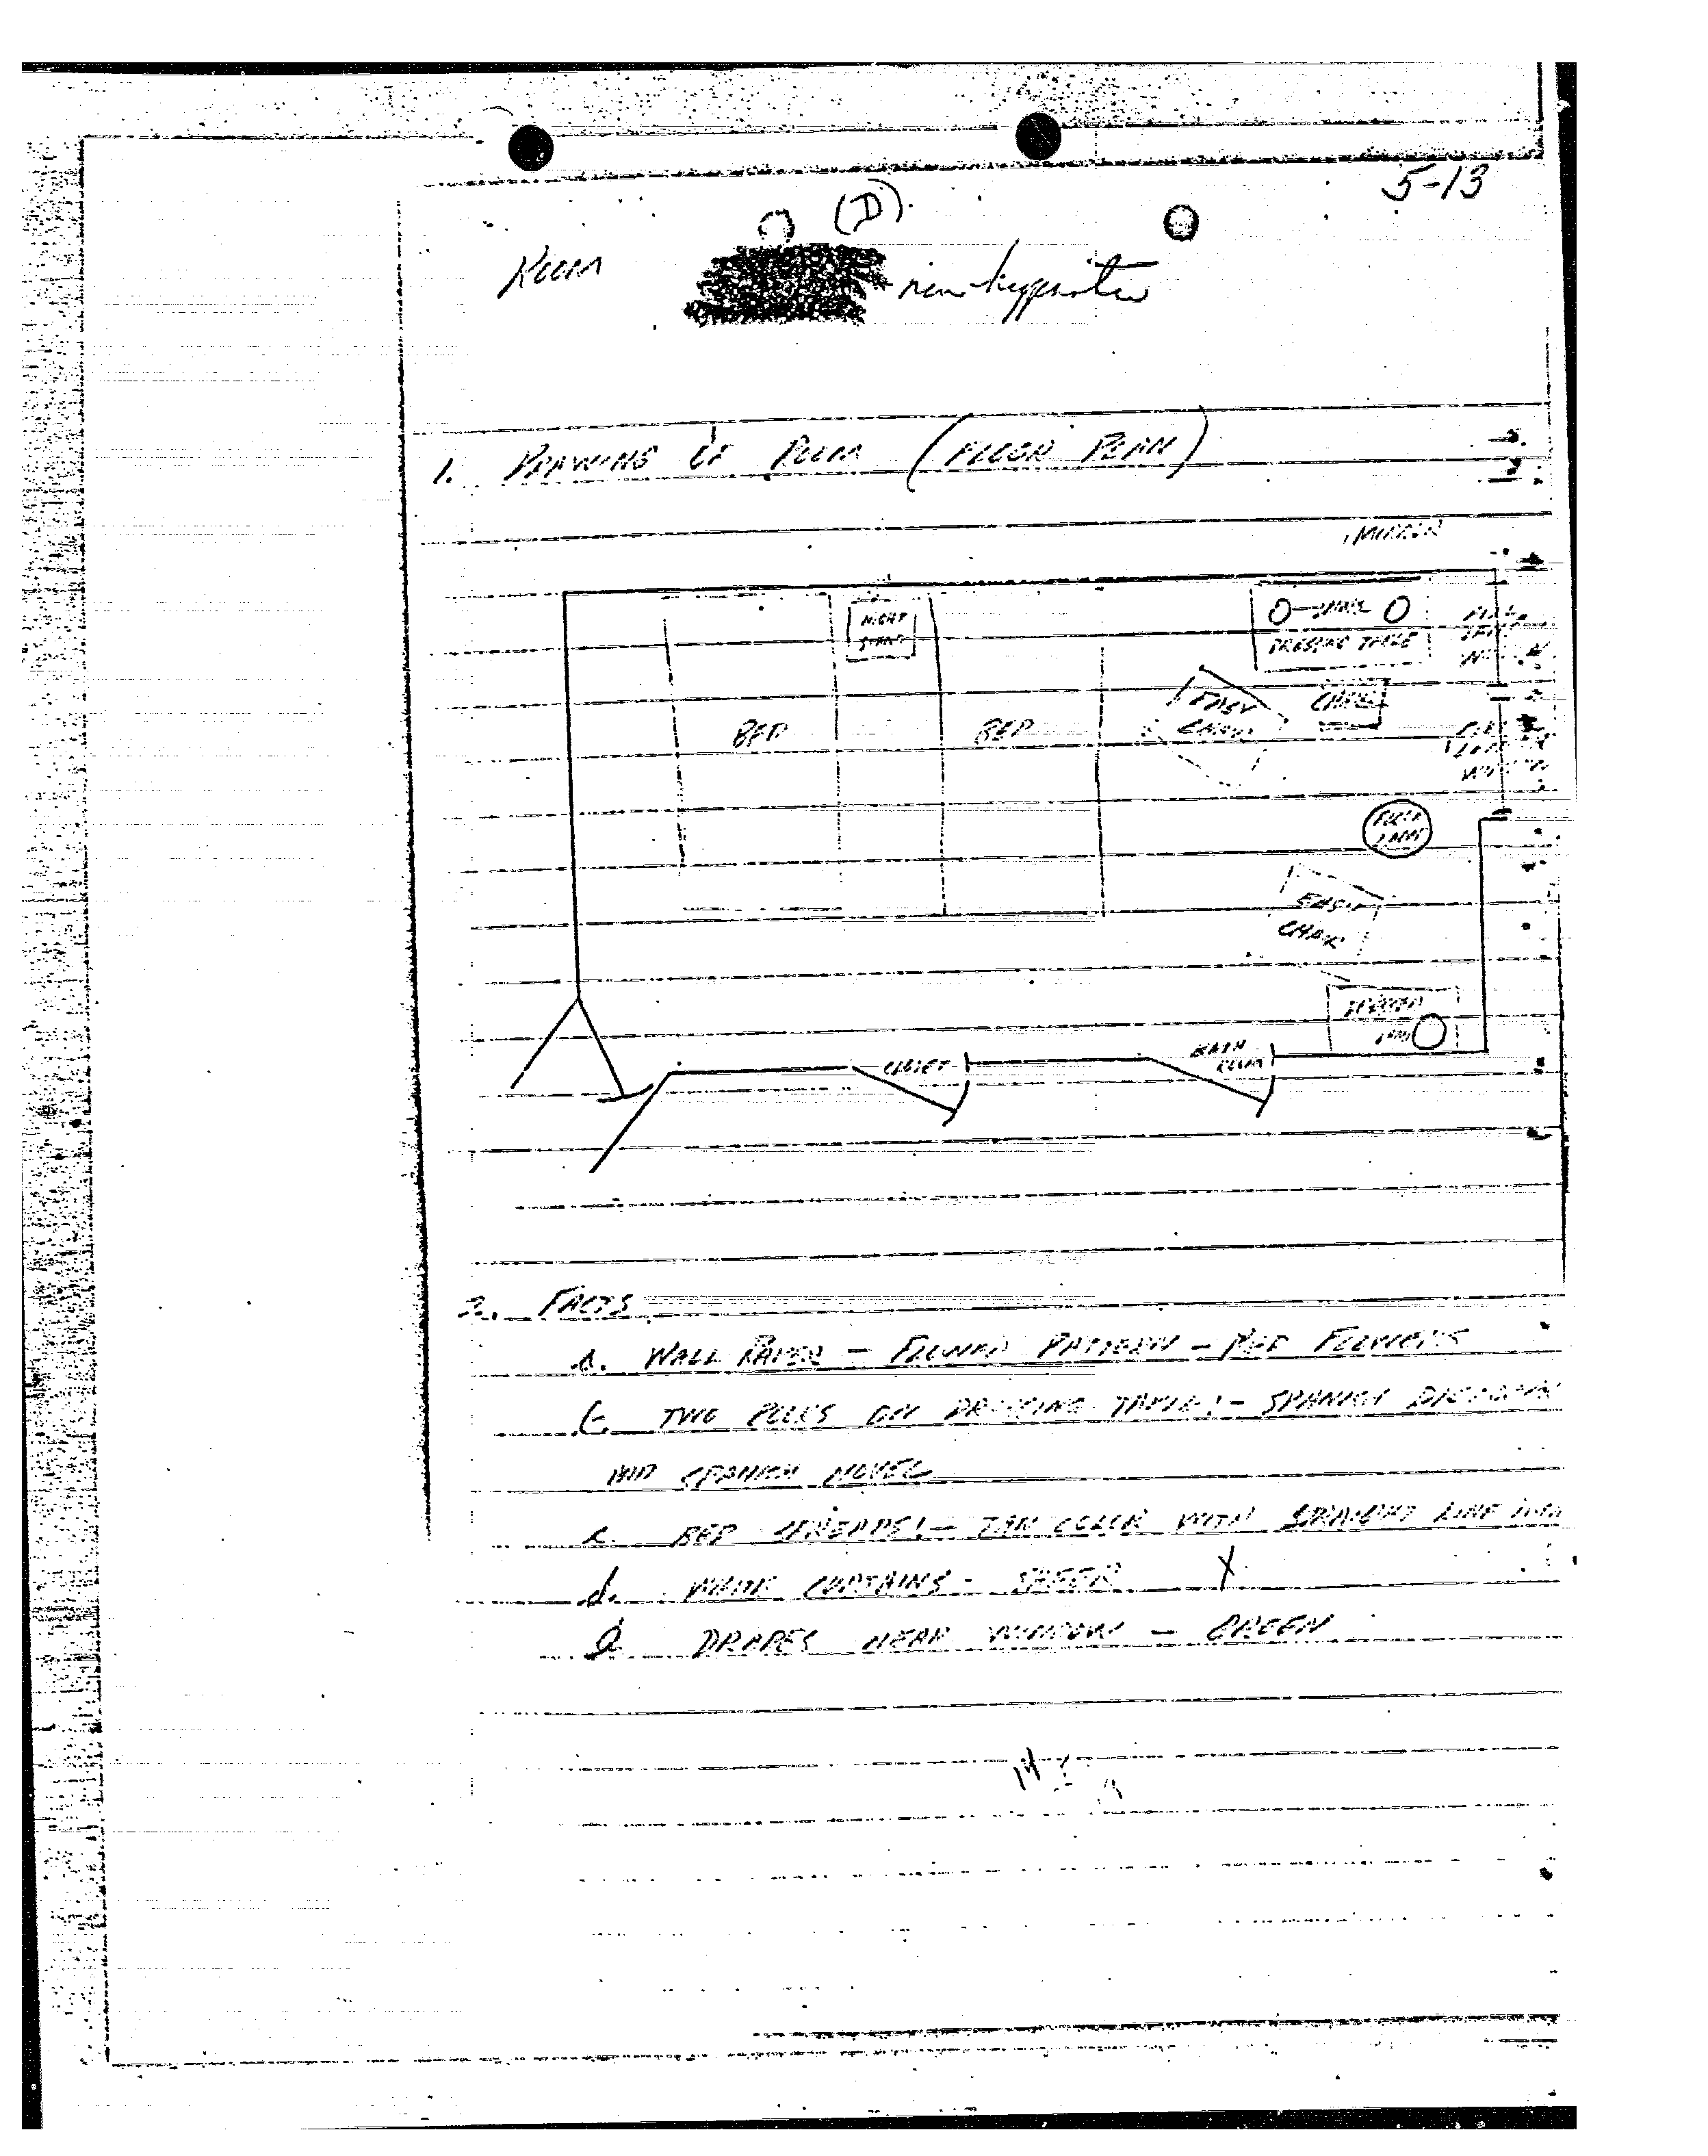 5-13
(D)
Room non-hypnotic
1. DRAWING OF ROOM (FLOOR PLAN)
MIRROR
NIGHT
STAND
LAMPS
DRESSING TABLE
BED
BED
EASY
CHAIR
CHAIR
FLOOR
LAMP
EASY
CHAIR
LAMP
CLOSET
BATH
ROOM
2. FACTS
a. WALL PAPER - FLOWER PATTERN - RED FLOWERS
b. TWO BOOKS ON DRESSING TABLE:- SPANISH
AND SPANISH NOVEL
c. BED SPREADS:- TAN COLOR WITH STRAIGHT LINE
d. WHITE CURTAINS - SHEER X
e. DRAPES NEAR WINDOW - GREEN